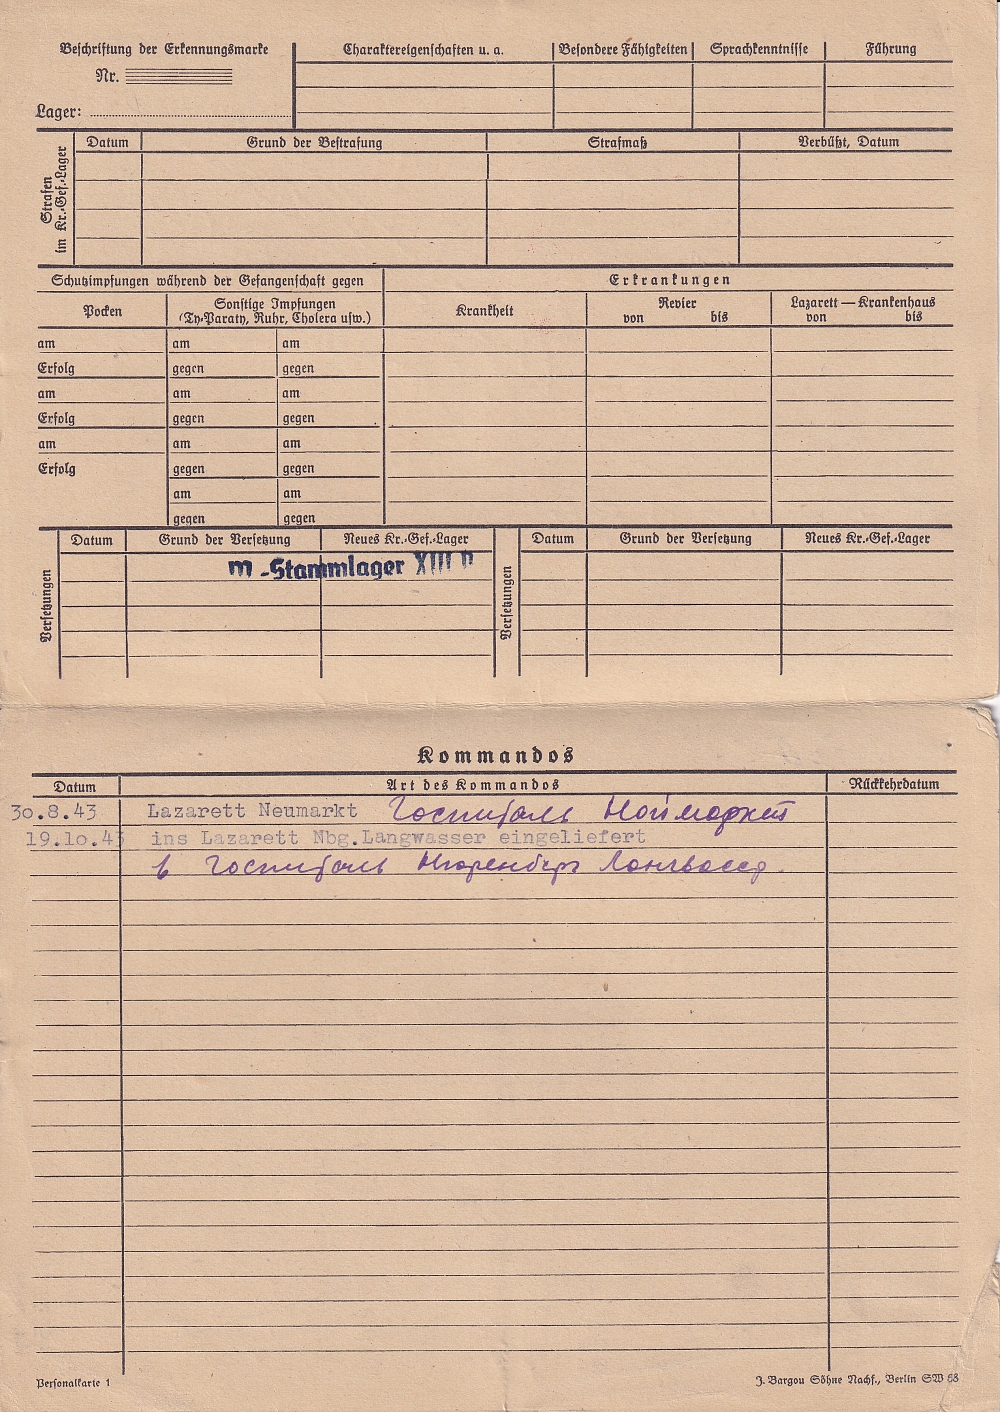 Beschriftung der Erkennungsmarke
Nr.
Lager:
Charaktereigenschaften u. a.
Besondere Fähigkeiten
Sprachkenntnisse
Führung
Strafen
im Kr.-Gef.-Lager
Datum
Grund der Bestrafung
Strafmaß
Verbüßt, Datum
Schutzimpfungen während der Gefangenschaft gegen
Erkrankungen
Pocken
Sonstige Impfungen
(Ty-Paraty, Ruhr, Cholera usw.)
Krankheit
Revier
von bis
Lazarett — Krankenhaus
von bis
am am am
Erfolg gegen gegen
am am am
Erfolg gegen gegen
am am am
Erfolg gegen gegen
am am
gegen gegen
Versetzungen
Datum
Grund der Versetzung
Neues Kr.-Gef.-Lager
Stammlager XIII
Versetzungen
Datum
Grund der Versetzung
Neues Kr.-Gef.-Lager
Kommandos
Datum
Art des Kommandos
Rückkehrdatum
30.8.43 Lazarett Neumarkt Госпиталь Ноймаркт
19.10.43 ins Lazarett Nbg.Langwasser eingeliefert
в госпиталь Нюренберг Лангвассер
Personalkarte 1
J. Bargou Söhne Nachf., Berlin SW 68